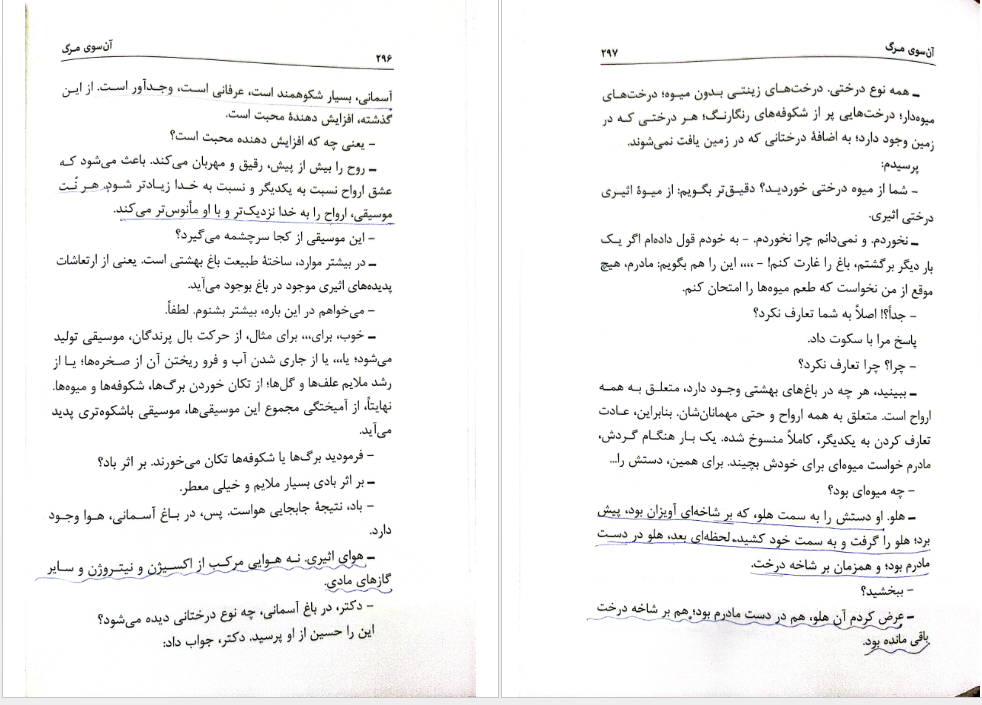 آن‌سوی مرگ
۲۹۶
آسمانی، بسیار شکوهمند است، عرفانی است، وجدآور است. از این
گذشته، افزایش دهندهٔ محبت است.
- یعنی چه که افزایش دهنده محبت است؟
ـ روح را بیش از پیش، رقیق و مهربان می‌کند. باعث می‌شود که
عشق ارواح نسبت به یکدیگر و نسبت به خدا زیادتر شود. هر نُت
موسیقی، ارواح را به خدا نزدیک‌تر و با او مأنوس‌تر می‌کند.
- این موسیقی از کجا سرچشمه می‌گیرد؟
ـ در بیشتر موارد، ساختهٔ طبیعت باغ بهشتی است. یعنی از ارتعاشات
پدیده‌های اثیری موجود در باغ بوجود می‌آید.
- می‌خواهم در این باره، بیشتر بشنوم. لطفاً.
ـ خوب، برای،،، برای مثال، از حرکت بال پرندگان، موسیقی تولید
می‌شود؛ یا،،، یا از جاری شدن آب و فرو ریختن آن از صخره‌ها؛ یا از
رشد ملایم علف‌ها و گل‌ها؛ از تکان خوردن برگ‌ها، شکوفه‌ها و میوه‌ها.
نهایتاً، از آمیختگی مجموع این موسیقی‌ها، موسیقی باشکوه‌تری پدید
می‌آید.
- فرمودید برگ‌ها یا شکوفه‌ها تکان می‌خورند. بر اثر باد؟
ـ بر اثر بادی بسیار ملایم و خیلی معطر.
- باد، نتیجهٔ جابجایی هواست. پس، در باغ آسمانی، هوا وجود
دارد.
ـ هوای اثیری. نه هوایی مرکب از اکسیژن و نیتروژن و سایر
گازهای مادی.
- دکتر، در باغ آسمانی، چه نوع درختانی دیده می‌شود؟
این را حسین از او پرسید. دکتر، جواب داد:
آن‌سوی مرگ
۲۹۷
ـ همه نوع درختی. درخت‌های زینتی بدون میوه؛ درخت‌های
میوه‌دار؛ درخت‌هایی پر از شکوفه‌های رنگارنگ؛ هر درختی که در
زمین وجود دارد؛ به اضافهٔ درختانی که در زمین یافت نمی‌شوند.
پرسیدم:
- شما از میوه درختی خوردید؟ دقیق‌تر بگویم: از میوهٔ اثیری
درختی اثیری.
ـ نخوردم. و نمی‌دانم چرا نخوردم. - به خودم قول داده‌ام اگر یک
بار دیگر برگشتم، باغ را غارت کنم! - ،،،، این را هم بگویم: مادرم، هیچ
موقع از من نخواست که طعم میوه‌ها را امتحان کنم.
- جداً؟! اصلاً به شما تعارف نکرد؟
پاسخ مرا با سکوت داد.
- چرا؟ چرا تعارف نکرد؟
ـ ببینید، هر چه در باغ‌های بهشتی وجود دارد، متعلق به همه
ارواح است. متعلق به همه ارواح و حتی مهمانان‌شان. بنابراین، عادت
تعارف کردن به یکدیگر، کاملاً منسوخ شده. یک بار هنگام گردش،
مادرم خواست میوه‌ای برای خودش بچیند. برای همین، دستش را...
- چه میوه‌ای بود؟
ـ هلو. او دستش را به سمت هلو، که بر شاخه‌ای آویزان بود، پیش
برد؛ هلو را گرفت و به سمت خود کشید. لحظه‌ای بعد، هلو در دست
مادرم بود؛ و همزمان بر شاخه درخت.
- ببخشید؟
ـ عرض کردم آن هلو، هم در دست مادرم بود؛ هم بر شاخه درخت
باقی مانده بود.